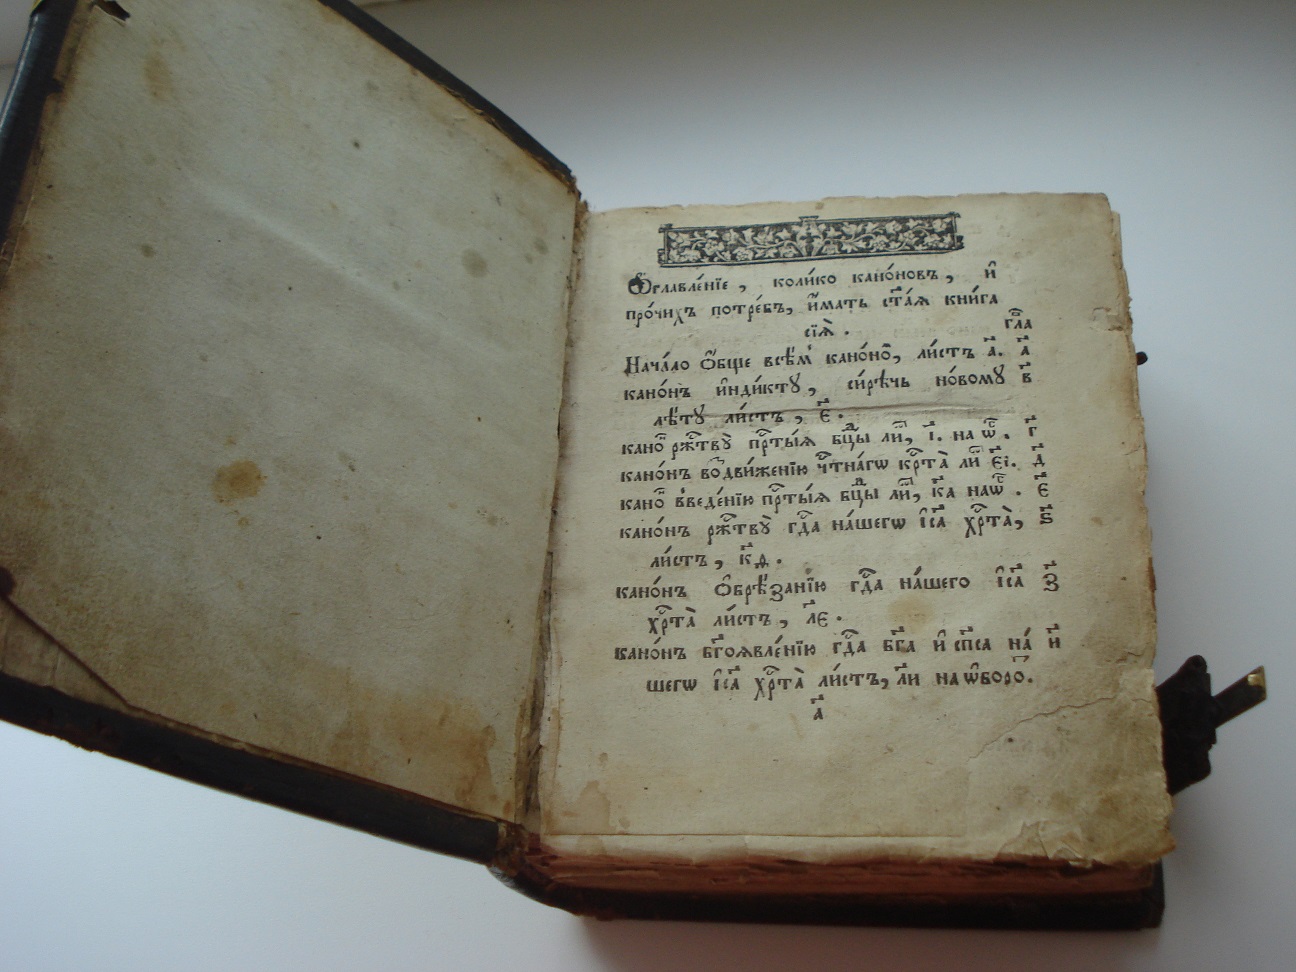 Ѡ҆главле́нїе , коли́ко кано́новъ , и҆
про́чихъ потре́бъ, и҆́мать ст҃а́ѧ кни́га
сїѧ̀ . гл҃а
Нача́ло ѻ҆́бще всѣ́мъ кано́нѡⷨ, ли́стъ а҃. а҃
кано́нъ и҆ндікту , си́рѣчь но́вому в҃
лѣ́ту ли́стъ , є҃ .
канѡⷩ҇ рж҇тву̀ пр҇ты́ѧ бц҃ы лиⷭ҇, і҃. на ѡ҆ⷠ҇ . г҃
кано́нъ воⷥдви́женїю чⷭ҇тна́гѡ крⷭ҇та̀ лиⷭ҇ є҃і. д҃
каноⷩ҇ введе́нїю прⷭ҇ты́ѧ бц҃ы лиⷭ҇, к҃а на ѡ҆ⷠ҇ . є҃
кано́нъ ржⷭ҇тву̀ гдⷭ҇а на́шегѡ і҆с҃а хрⷭ҇та̀, ѕ҃
ли́стъ , к҃д .
кано́нъ ѻ҆брѣ́занїю гдⷭ҇а на́шего і҆с҃а з҃
хрⷭ҇та̀ ли́стъ , л҃є .
кано́нъ бг҃оѧвле́нїю гдⷭ҇а бг҃а и҆ сп҃са на́ и҃
шегѡ і҆с҃а хрⷭ҇та̀ ли́стъ, л҃и на ѡ҆боро̑.
а҃